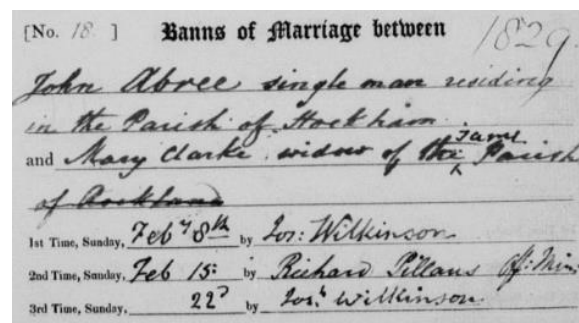 [No. 18. ] Banns of Marriage between 1829
John Abree single man residing
in the Parish of Hockham
and Mary Clarke widow of the same Parish
of Rockland
1st Time, Sunday, Feby 8th by Jos: Wilkinson
2nd Time, Sunday, Feb 15: by Richard Pillans Off: Min:
3rd Time, Sunday, 22d by Josh Wilkinson